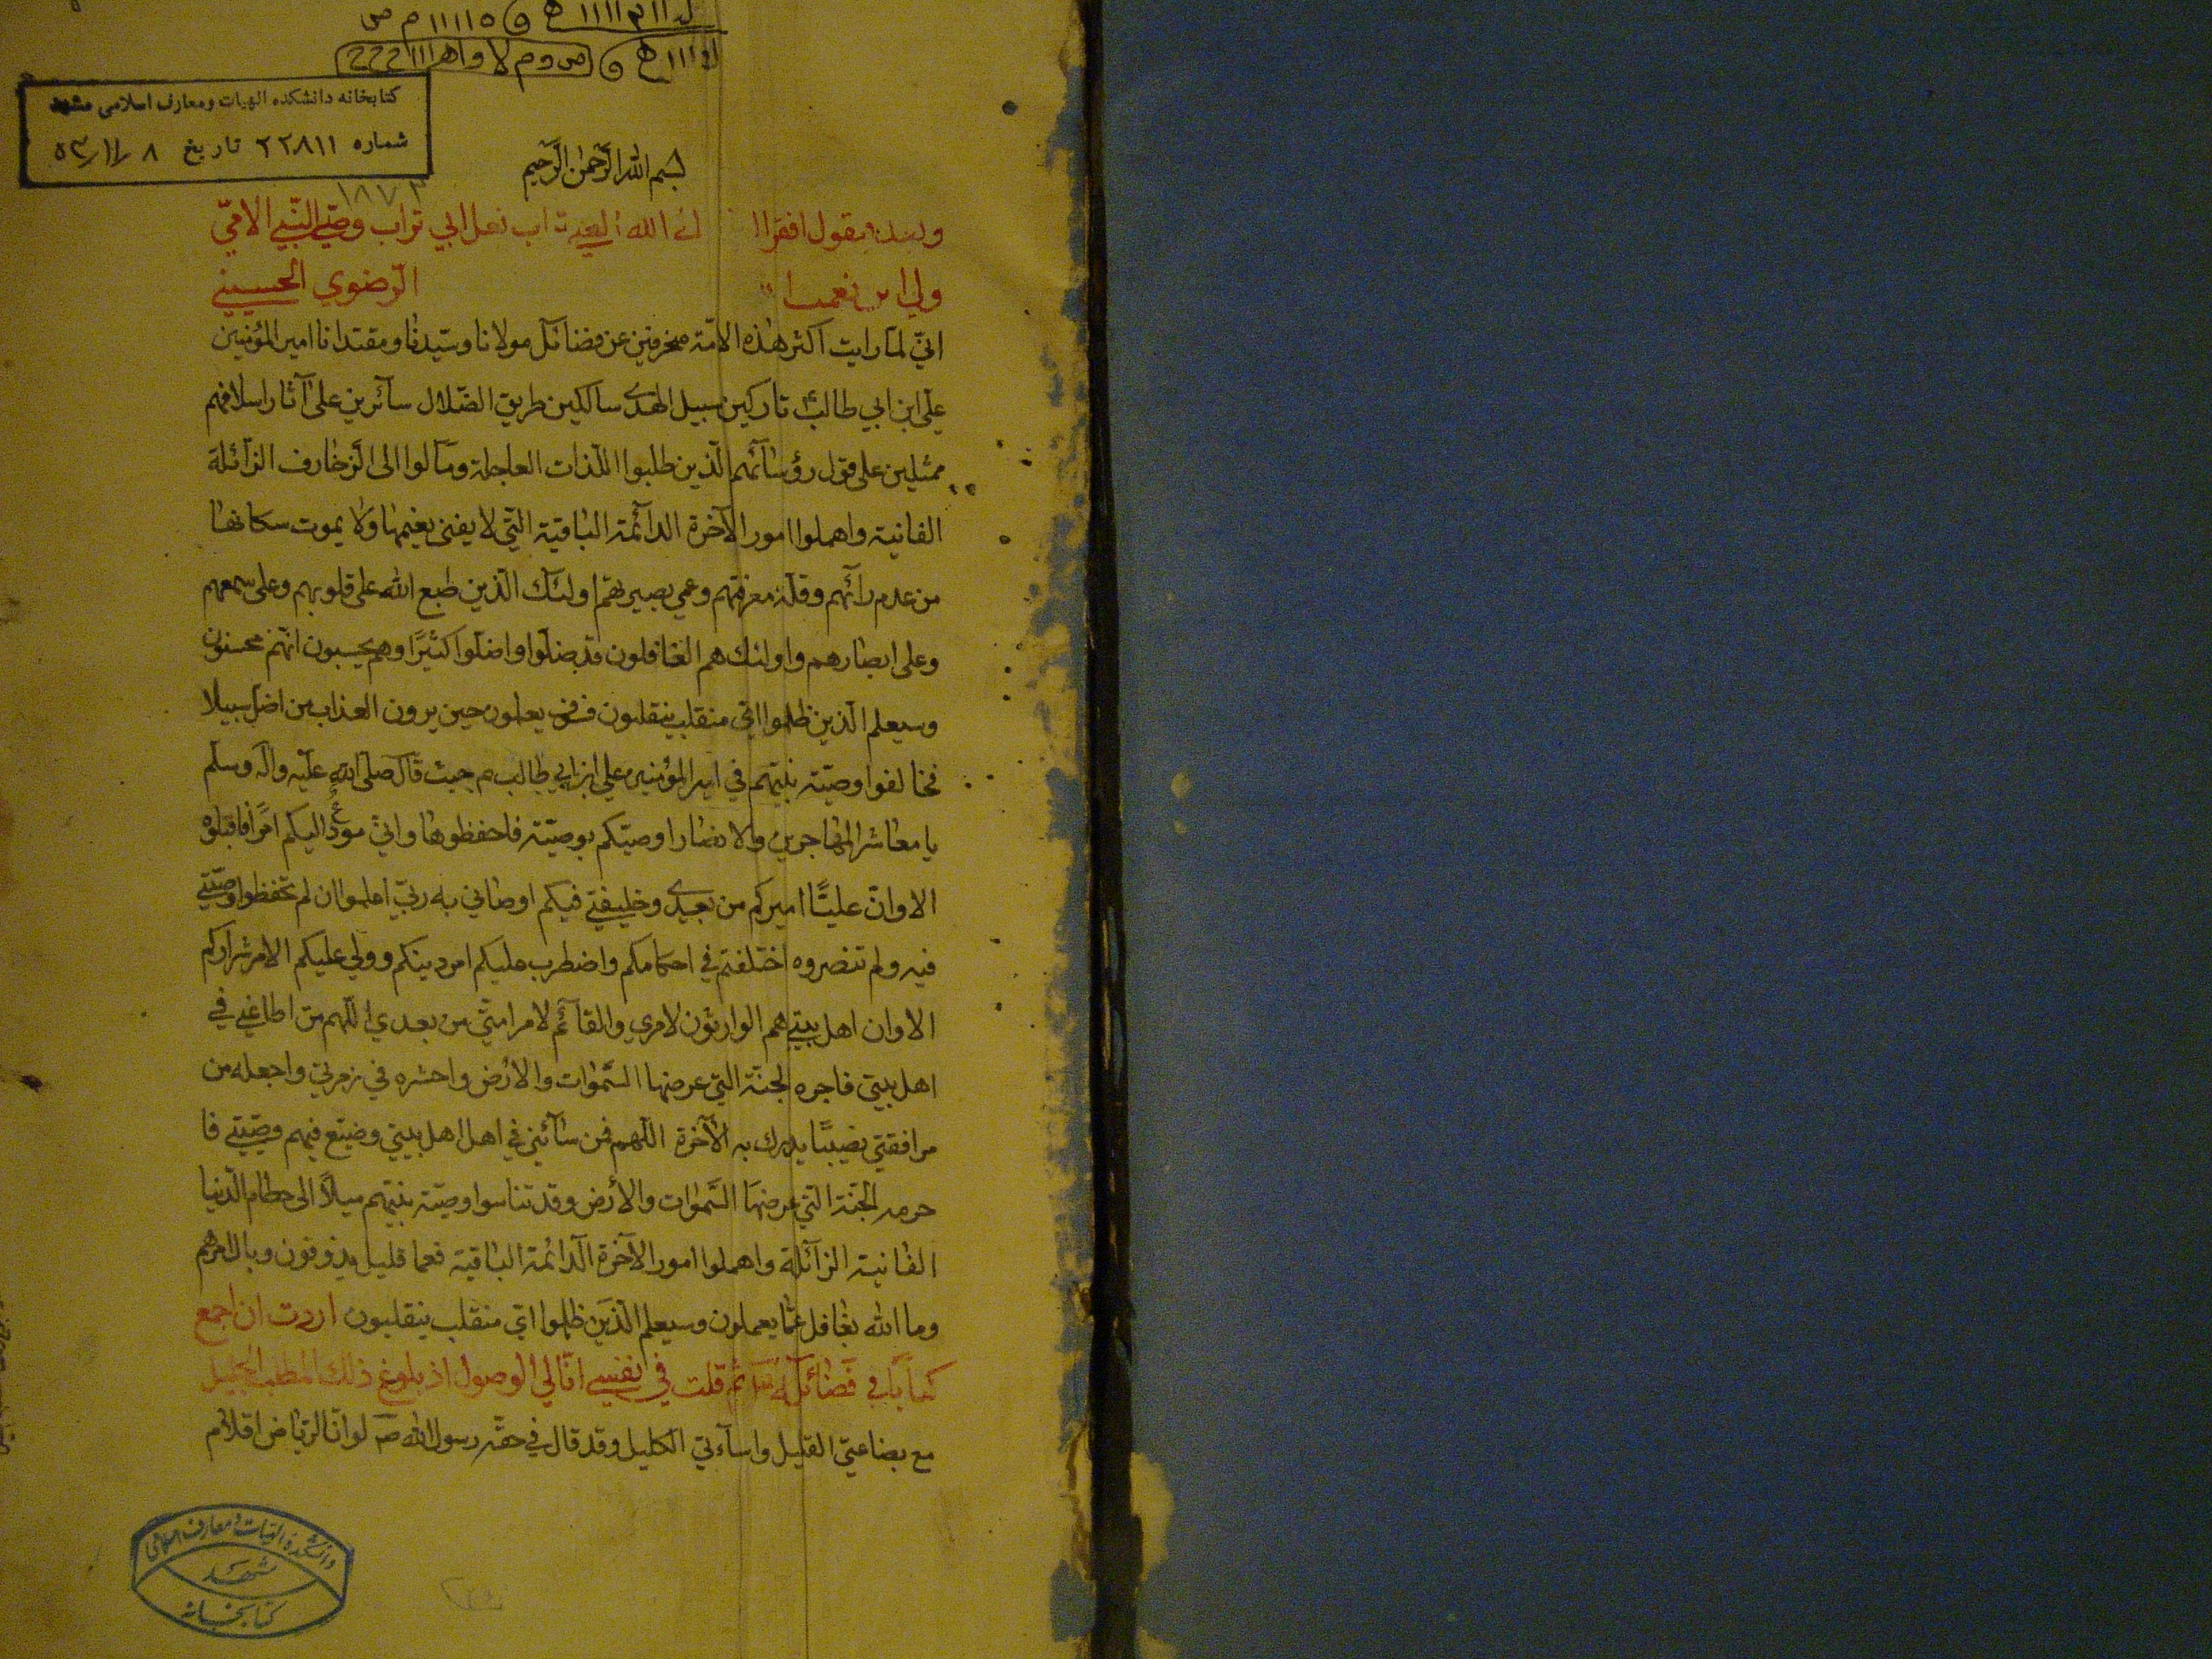 كتابخانه دانشكده الهیات ومعارف اسلامی مشهد
شماره ۲۲۸۱۱ تاریخ ۸ /۱۱/ ۵۳
۱۸۷۳
بسم الله الرّحمٰن الرّحيم
وبعد يقول افقر الى الله تراب نعل ابي تراب وصيّ النّبي الامّي
ولي ابن نعمت الرّضوي الحسيني
انّي لمّا رايت اكثر هٰذه الامّة منحرفين عن فضائل مولانا وسيّدنا ومقتدانا امير المؤمنين
علّي ابن ابي طالب تاركين سبيل الهدى سالكين طريق الضّلال سآئرين علىٰ آثار اسلافهم
ممثيلين على قول رؤسٰآئهم الّذين طلبوا اللّذات العاجلة ومالوا الى الزّخارف الزآئلة
الفانية واهملوا امور الآخرة الدآئمة البٰاقية الّتي لا يفنى نعيمها ولٰا يموت سكانهٰا
من عدم رآئهم وقلّة معرفتهم وعمي بصيرتهم اولئك الّذين طبع الله على قلوبهم وعلى سمعهم
وعلى ابصٰارهم واولئك هم الغٰافلون قد ضلّوا واضلّوا كثيرًا وهم يحسبون انّهم محسنون
وسيعلم الّذين ظلموا ايّ منقلب ينقلبون فسوف يعلمون حين يرون العذاب من اضل سبيلا
فخالفوا وصيّة نبيّهم في امير المؤمنين علي ابن ابي طالب ع حيث قال صلّى الله عليه وآله وسلّم
يا معٰاشر المهٰاجرين والانصٰار اوصيتكم بوصيّة فاحفظوهٰا وانّي مؤدّ اليكم امرًا فاقبلوه
الا وانّ عليًّا اميركم من بعدي وخليفتي فيكم اوصٰاني به ربّي اعلموا ان لم تحفظوا وصيّتي
فيه ولم تنصروه اختلفتم في احكامكم واضطرب عليكم امر دينكم وولي عليكم الامر شراركم
الا وان اهل بيتي هم الوارثون لامري والقآئم لامر امتّي من بعدي اللّهم من اطاعني في
اهل بيتي فاجره لجنّة الّتي عرضها السّمٰوات والارض واحشره في زمرتي واجعله من
مرافقتي نصيبًا يدرك به الآخرة اللّهم فمن سٰآئني في اهل اهل بيتي وضيّع فيهم وصيّتي فا
حرمه الجنّة الّتي عرضها السّمٰوات والأرض وقد تناسوا وصيّة نبيّهم ميلًا الى حطام الدّنيا
الفٰانية الزآئلة واهملوا امور الآخرة الدّائمة البٰاقية فعما قليل يذوقون وبال امرهم
وما الله بغٰافل عمّا يعملون وسيعلم الّذين ظلموا ايّ منقلب ينقلبون اردت ان اجمع
كتابًا في فضٰائله ثم قلت في نفسي انّالي الوصول اذ بلوغ ذلك المطلب الجليل
مع بضاعتي القليل واسآءتي الكليل وقد قال في حقّه رسول الله ص لو انّ الرّيٰاض اقلام
دانشكده الهیات و معارف اسلامی
مشهد
كتابخانه